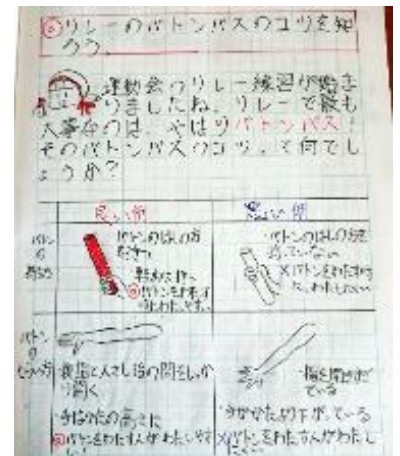 ◎リレーのバトンパスのコツを知
ろう
運動会のリレー練習が始ま
りましたね。リレーで最も
大事なのは、やはりバトンパス!
そのバトンパスのコツって何でし
ょうか?
良い例
悪い例
バトン
の
持ち方
バトンのはしの方
を
◎バトンをわたす
わたしやすい
・バトンのはしの方を
持っていない
×バトンをわたす時
に、わたしにくい
バトン
の
もらい方
・親指と人さし指の間をしっか
り開く
・手はかたの高さに
◎バトンをわたす人がわたしやす
い!
・指を
ている
・手がかたより下がっている
×バトンをわたす人がわたし
にくい